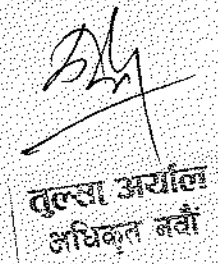 तुल्सा अर्याल
अधिकृत नवौं